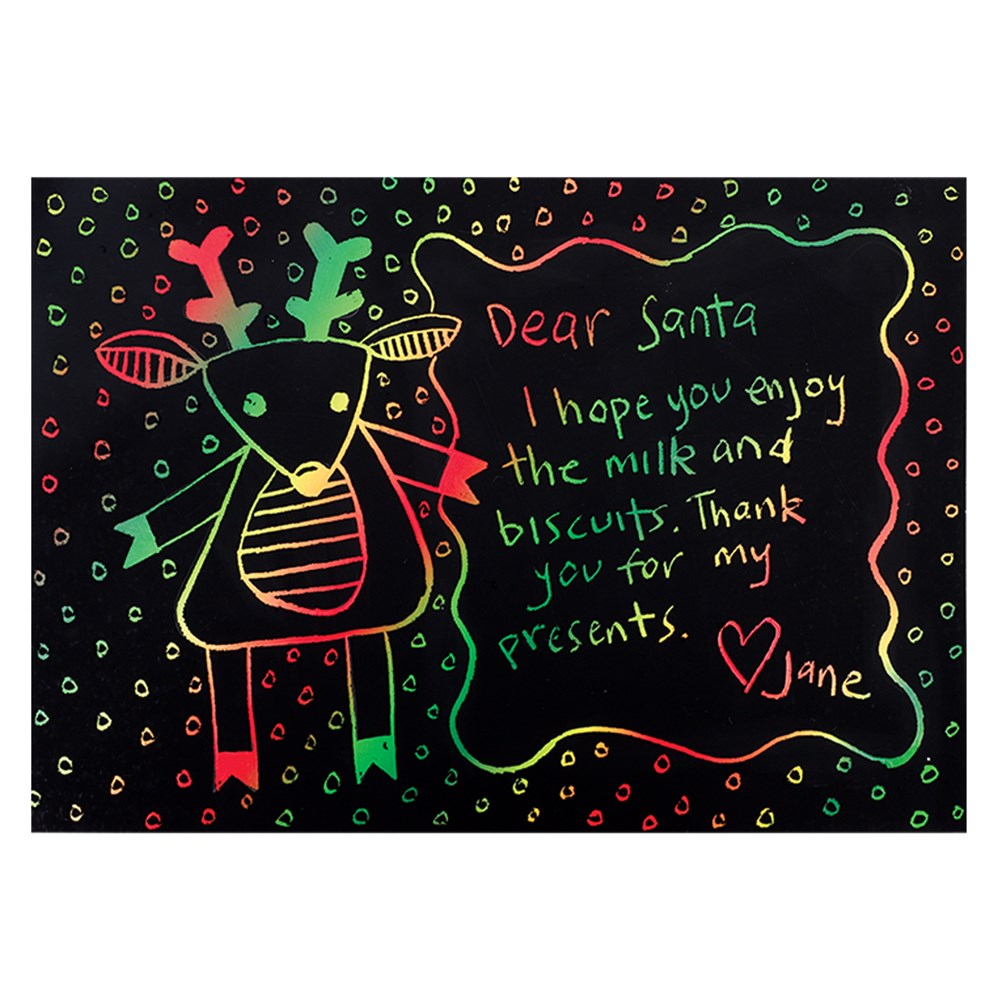 Dear Santa
I hope you enjoy
the milk and
biscuits. Thank
you for my
presents.
Jane